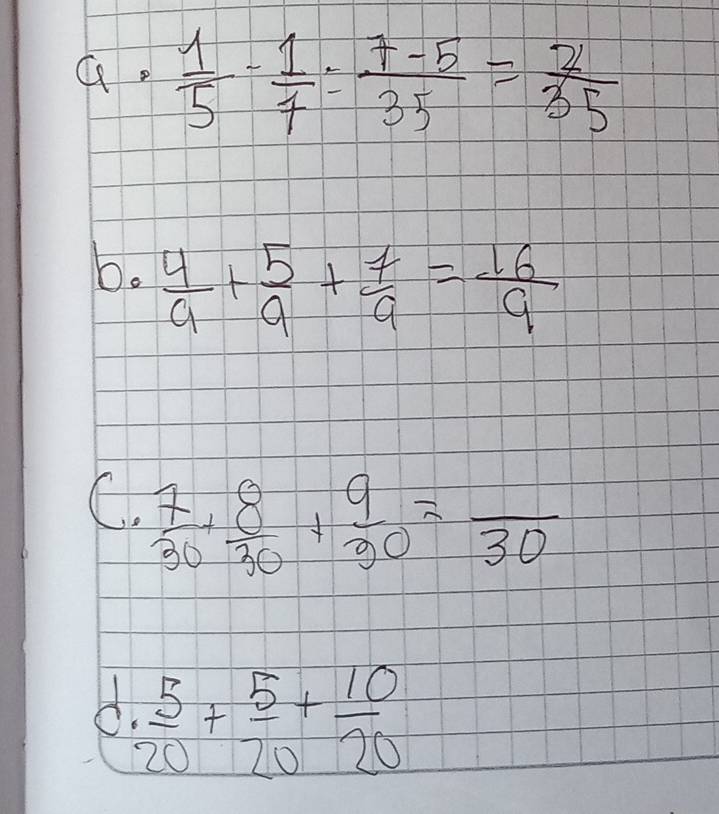 a. 1/5 - 1/7 = 7-5/35 = 2/35
b. 4/9 + 5/9 + 7/9 = 16/9
C. 7/30 + 8/30 + 9/30 = /30
d. 5/20 + 5/20 + 10/20